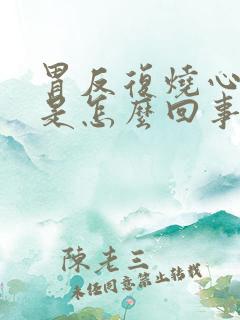 胃反復燒心
是怎麽回事
陳老三
未经同意禁止转载